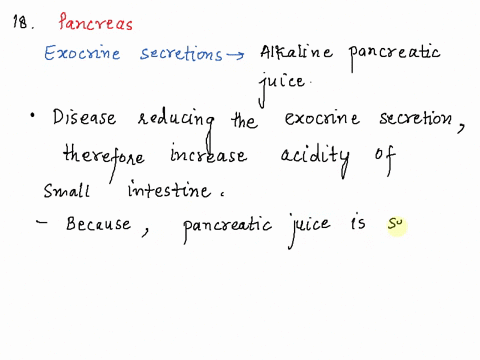 18. Pancreas
Exocrine secretions → Alkaline pancreatic
juice.
• Disease reducing the exocrine secretion,
therefore increase acidity of
small intestine.
- Because, pancreatic juice is